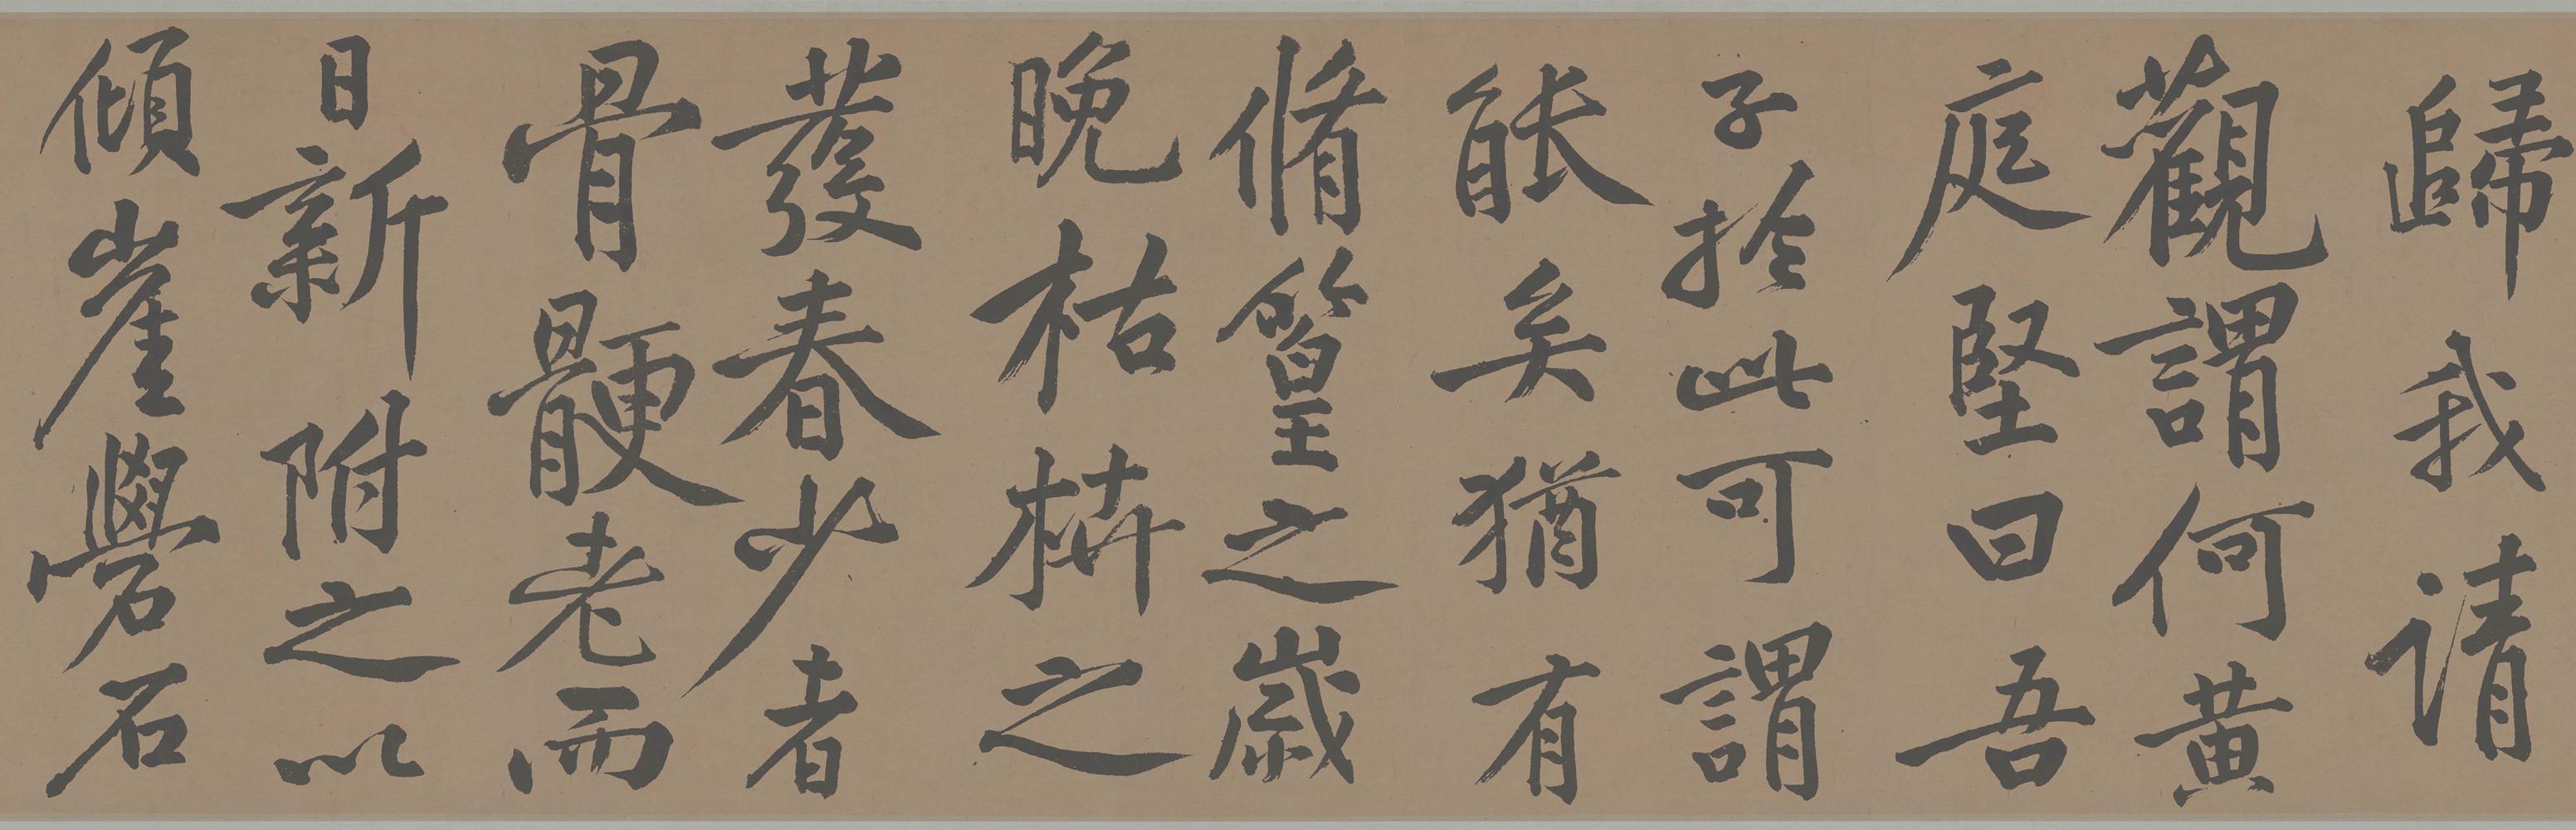 歸我請
觀謂何黄
庭堅曰吾
子於此可謂
能矣猶有
脩篁之歲
晚枯枿之
發春少者
骨骾老而
日新附之以
傾崖礐石